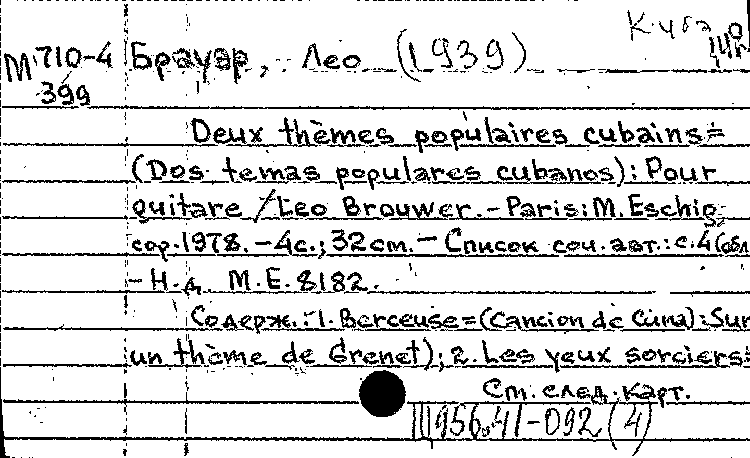 Куба
М 710-4 Брауар, Лео (1939)
399
Deux thèmes populaires cubains=
(Dos temas populares cubanos): Pour
guitare / Leo Brouwer. - Paris: M. Eschig,
cop. 1978. - 4 с.; 32 cm. - Список соч. авт.: с. 4 (обл
- Н. д. M.E. 8182.
Содерж.: 1. Berceuse=(Cancion de Cuna): Sur
un thème de Grenet); 2. Les yeux sorciers=
См. след. карт.
Ш956.41-092 (4)